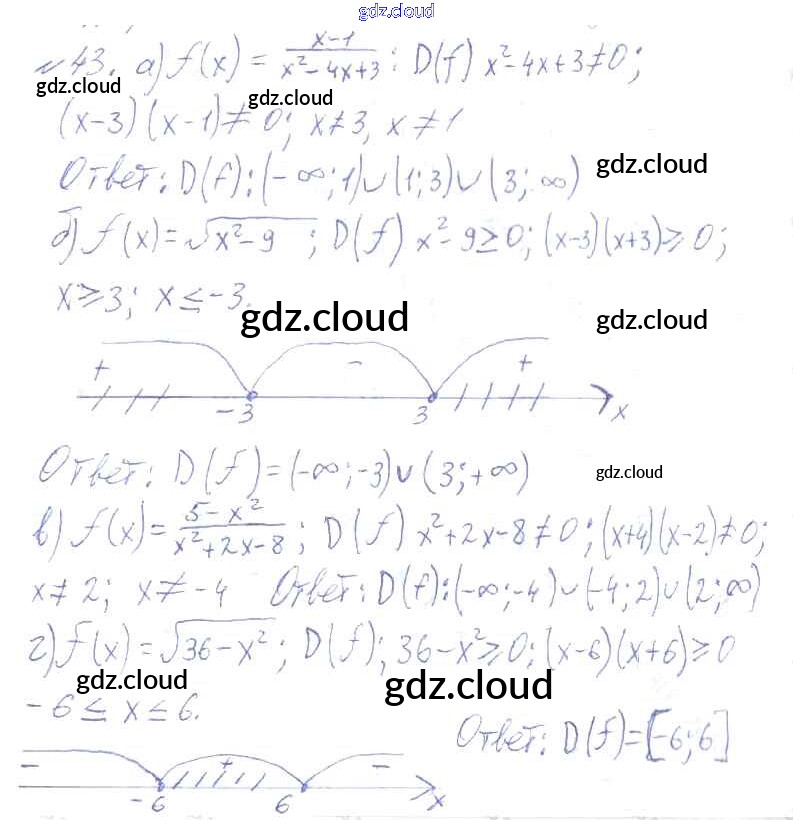 gdz.cloud
№43. а) f(x) = (x-1)/(x²-4x+3): D(f) x²-4x+3≠0;
gdz.cloud gdz.cloud
(x-3)(x-1)≠0; x≠3, x≠1
Ответ: D(f): (-∞; 1)∪(1; 3)∪(3; ∞)
gdz.cloud
б) f(x)=√(x²-9) ; D(f) x²-9≥0; (x-3)(x+3)≥0;
x≥3; x≤-3.
gdz.cloud gdz.cloud
+ - +
-3 3 x
Ответ: D(f)=(-∞;-3)∪(3;+∞)
gdz.cloud
в) f(x)= (5-x²)/(x²+2x-8) ; D(f) x²+2x-8≠0; (x+4)(x-2)≠0;
x≠2; x≠-4 Ответ: D(f): (-∞;-4)∪(-4;2)∪(2;∞)
г) f(x)=√(36-x²); D(f); 36-x²≥0; (x-6)(x+6)≥0
gdz.cloud gdz.cloud
-6≤x≤6.
Ответ: D(f)=[-6;6]
- + -
-6 6 x